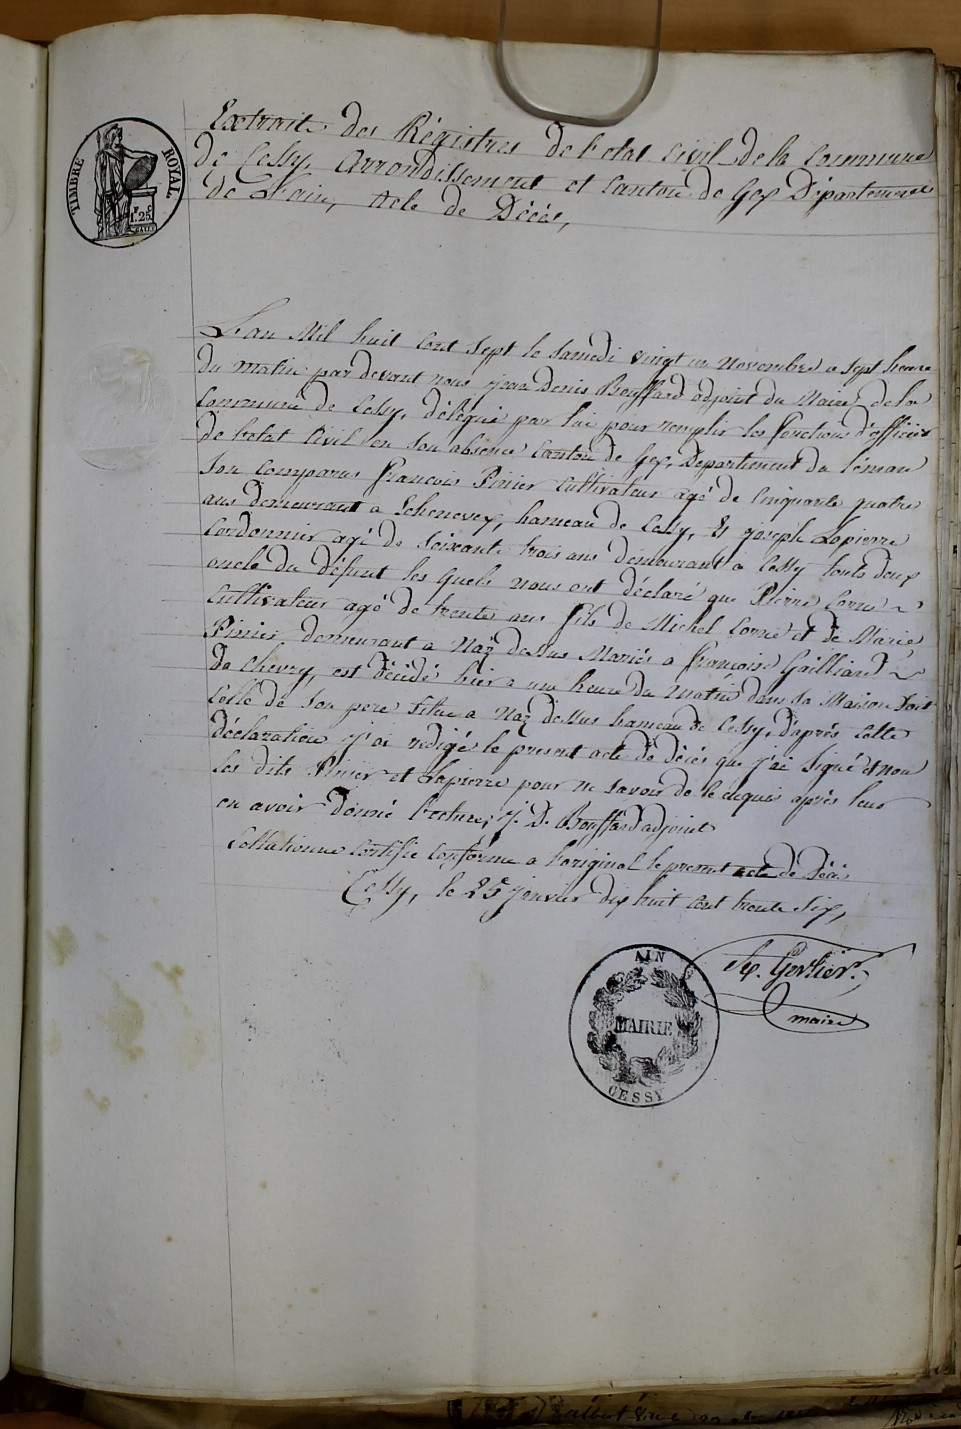 TIMBRE ROYAL
1F. 25C.
Extrait des Régistres de l'etat civil de la Commune
de Cessy, arrondissement et canton de Gex Département
de L'ain, Acte de Décès,
L'an Mil huit Cent sept le Samedi vingt un Novembre a sept heure
du matin par devant nous jean Denis Bouffard adjoint du Maire de la
Commune de Cessy, délégué par lui pour remplir les fonctions d'officier
de l'etat Civil en son absence Canton de Gex, Departement du Léman
Son Comparus francois Pinier Cultivateur agé de Cinquante quatre
ans demeurant a Echenevex, hameau de Cessy, Et joseph Lapierre
Cordonnier agé de Soixante trois ans demeurant a Cessy touts deux
oncle du défunt les quels nous ont déclaré que Pierre Cornu
Cultivateur agé de trente ans fils de Michel Cornu et de Marie
Pinier demeurant a Naz dessus Mariés a françoise Gailliard
de Chevry, est décédé hier a une heure du Matin dans sa Maison Soit
Celle de son pere Situe a Naz dessus hameau de Cessy, d'après Cette
déclaration j'ai redigés le present acte de décès que j'ai Signé et non
les dits Pinier et Lapierre pour ne savoir de ce enquis après leur
en avoir donné lecture, j. D. Bouffard adjoint
Collationne certifie Conforme a l'original le present acte de Décès
Cessy, le 25 janvier dix huit cent trente Six,
Gerlier
maire
AIN
MAIRIE
CESSY